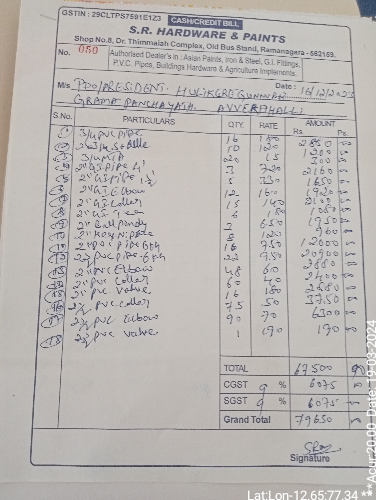 GSTIN : 29CLTPS7591E1Z3 CASH/CREDIT BILL
S.R. HARDWARE & PAINTS
Shop No.8, Dr. Thimmaiah Complex, Old Bus Stand, Ramanagara - 562159.
No. 050 Authorised Dealer's in : Asian Paints, Iron & Steel, G.I. Fittings,
P.V.C. Pipes, Buildings Hardware & Agriculture Implements.
M/s PDO/PRESIDENT. Date : 16/12/
GRAMA PANCHAYATH. AVVERAHALLI
S.No. PARTICULARS QTY. RATE AMOUNT
Rs. Pe.
3/4 PVC PIPE 16 180 2880
10 120 1200
20 15 300
2" GI PIPE 3 720 2160
GI PIPE 5 330 1650
2" GI Elbow 12 160 1920
2" GI 15 140 2100
2" GI Tee 6 180 1080
3 650 1950
8 120 960
2" PVC PIPE 16 750 12000
2½ PVC PIPE 22 950 20900
2" PVC Elbow 48 60 2880
2" PVC 60 40 2400
2" PVC Valve 16 180 2880
2½ PVC 75 50 3750
2½ PVC Elbow 90 70 6300
2½ PVC Valve 1 190 190
TOTAL 67500
CGST 9 % 6075
SGST 9 % 6075
Grand Total 79650
Signature
Lat:Lon-12.65:77.34
**Acur-20.00 Date: 19.03.2024